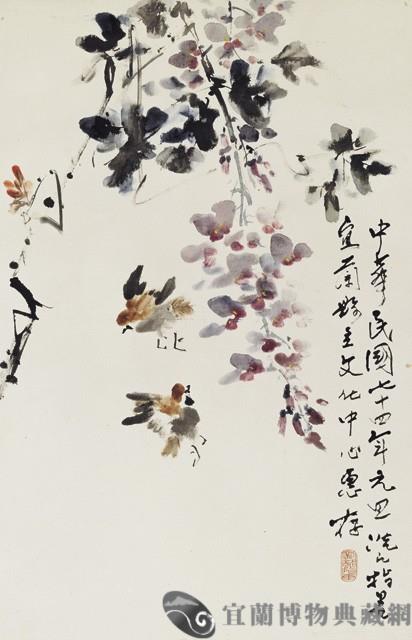 中華民國七十四年元旦 指墨
宜蘭縣立文化中心惠存
宜蘭博物典藏網